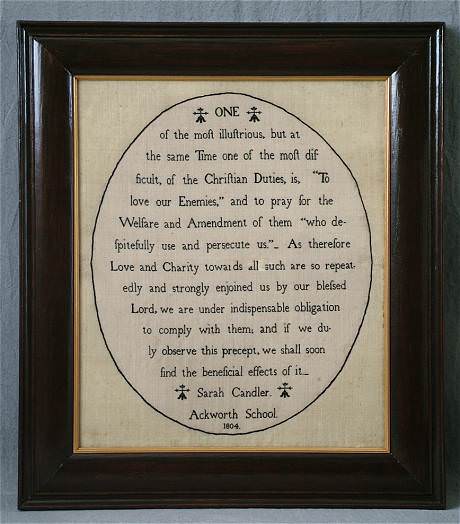 ONE
of the moſt illuſtrious, but at
the same Time one of the moſt dif
ficult, of the Chriſtian Duties, is, "To
love our Enemies," and to pray for the
Welfare and Amendment of them "who de-
ſpitefully use and persecute us."_ As therefore
Love and Charity towards all such are so repeat-
edly and strongly enjoined us by our bleſsed
Lord, we are under indispensable obligation
to comply with them; and if we du-
ly observe this precept, we shall soon
find the beneficial effects of it_
Sarah Candler.
Ackworth School.
1804.